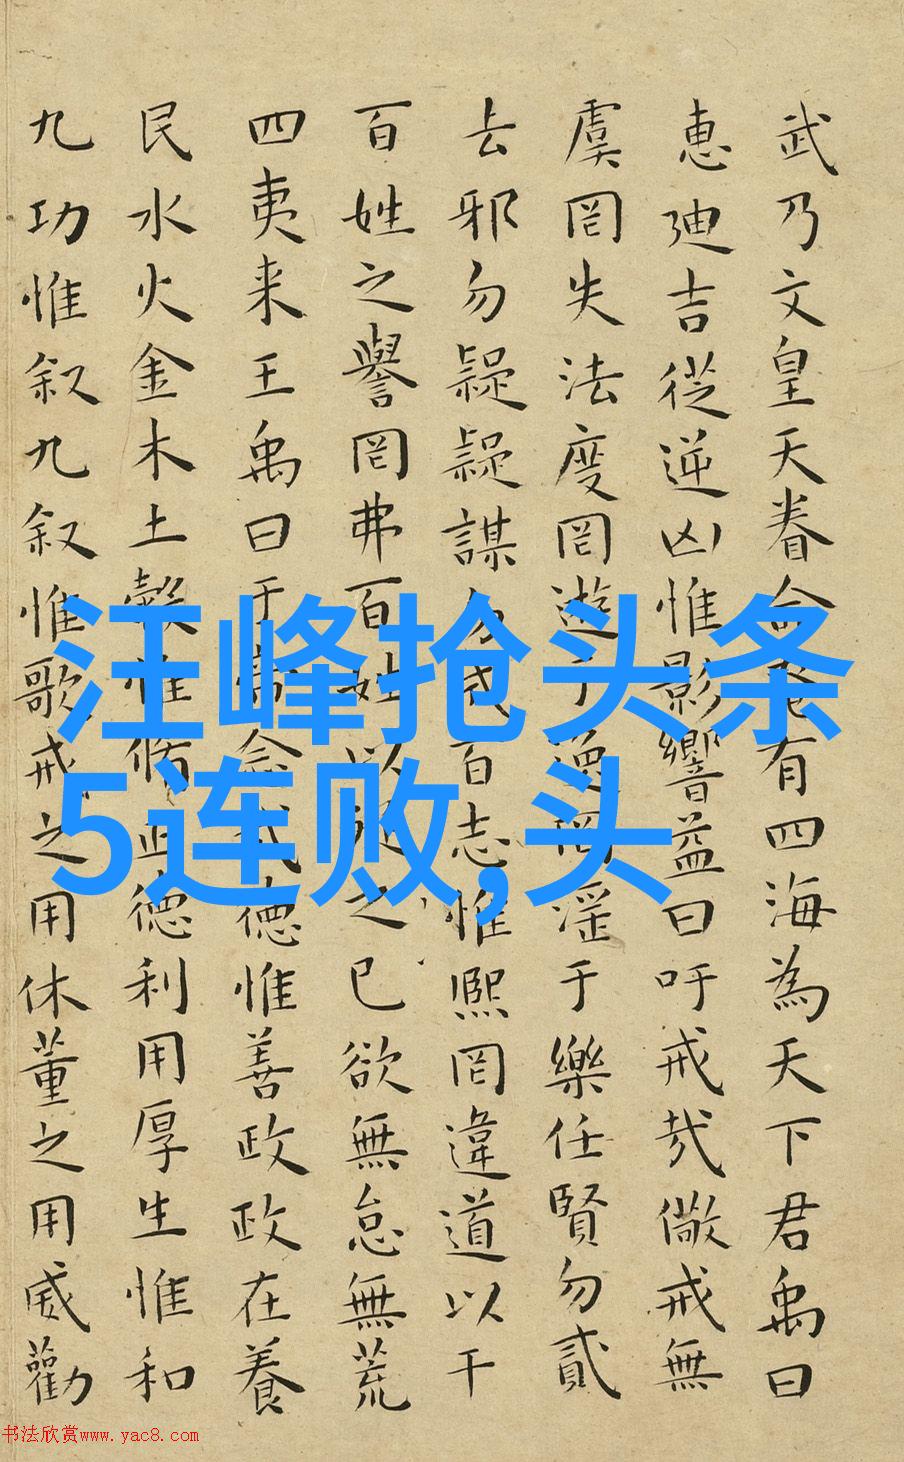 武乃文皇天眷命奄有四海為天下君禹曰
惠迪吉從逆凶惟影響益曰吁戒哉儆戒無
虞罔失法度罔遊于逸罔淫于樂任賢勿貳
去邪勿疑疑謀勿成百志惟熙罔違道以干
百姓之譽罔弗百姓以從之已欲無怠無荒
四夷来王禹曰于帝念哉德惟善政政在養
民水火金木土穀惟脩正德利用厚生惟和
九功惟叙九叙惟歌戒之用休董之用威勸
汪峰抢头条
5连败,头
书法欣赏www.yac8.com